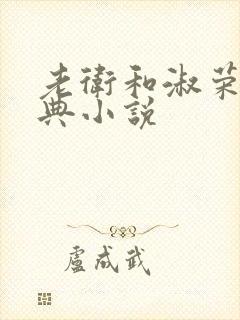 老衛和淑荣
典小说
盧成武